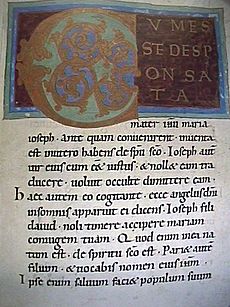 CUMES
SE DESP
ONSA
TA
mater ihu maria
ioseph · ante quam convenirent · inventa
est in utero habens de spu sco · Ioseph aut
vir eius cum eet iustus · & noll& eam tra
ducere · voluit occulte dimittere eam ·
haec autem eo cogitante · ecce angelus dni
in somnis apparuit ei dicens · Ioseph fili
david · noli timere accipere mariam
coniugem tuam · Quod enim in ea na
tum est · de spiritu sco est · Pari& aute
filium · & vocabis nomen eius ihm
Ipse enim salvum faci& populum suum